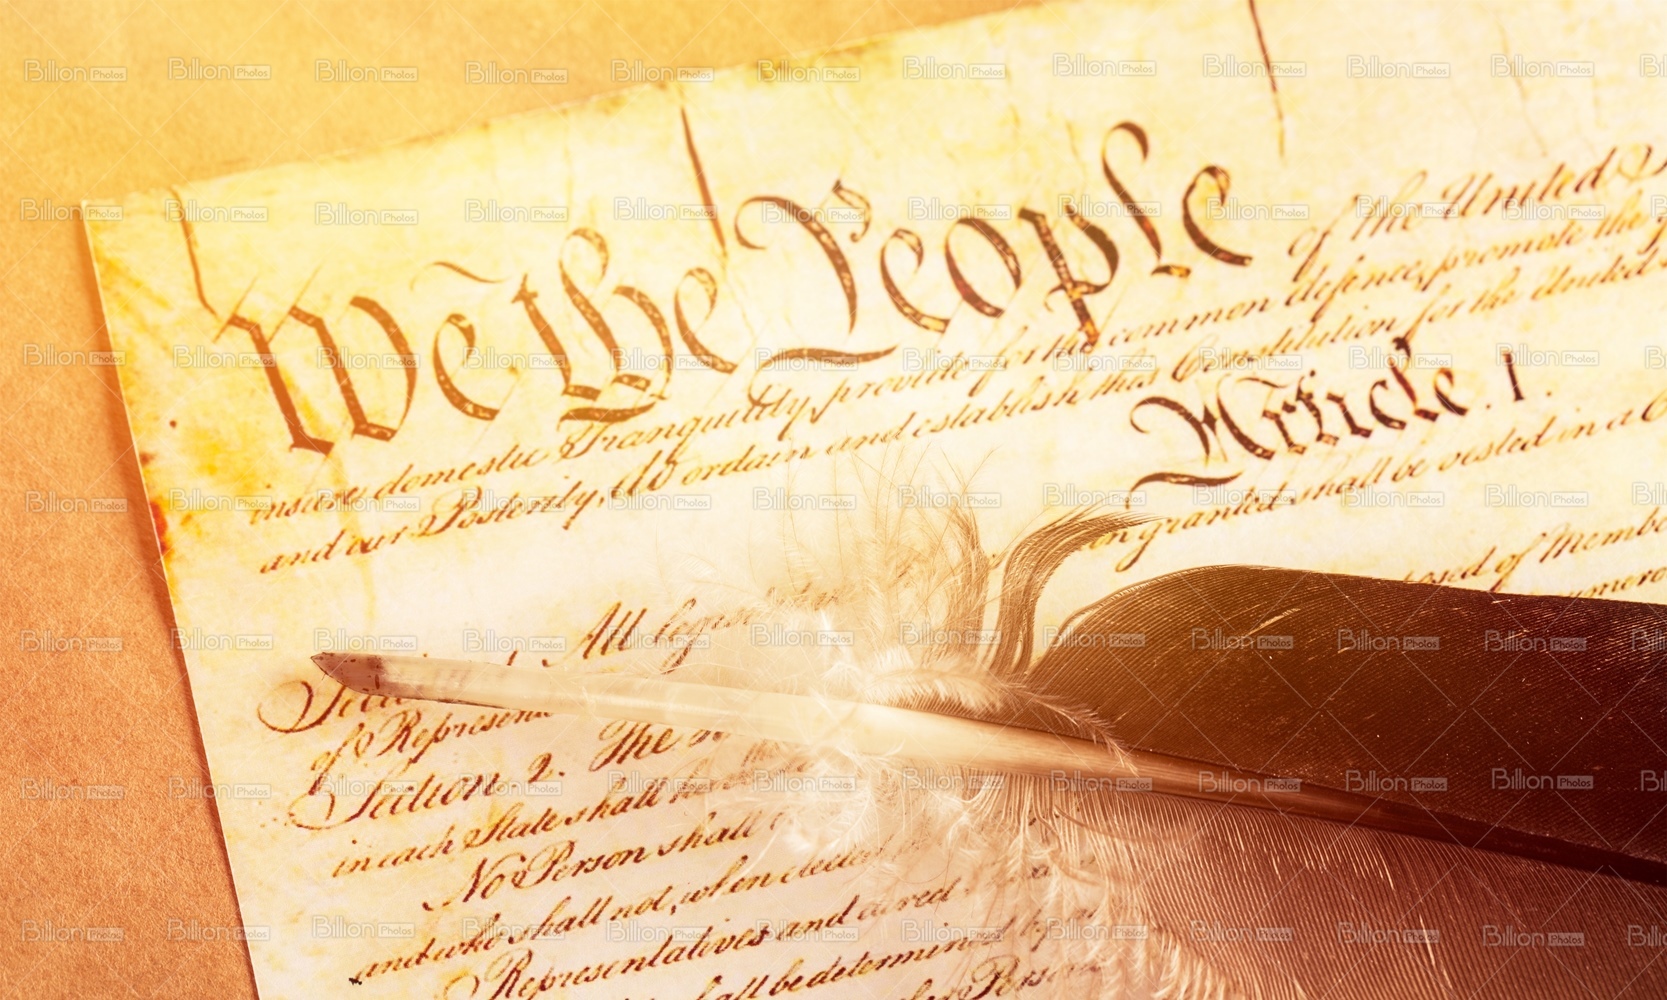 We the People of the United
insure domestic Tranquility, provide for the common defence, promote the
and our Posterity, do ordain and establish this Constitution for the United
Article. I.
All
granted shall be vested in a
of
of Members
Section. 2. The
in each State shall
No Person shall
and who shall not, when elected
Representatives and direct
shall be determined by
Persons
Billion Photos